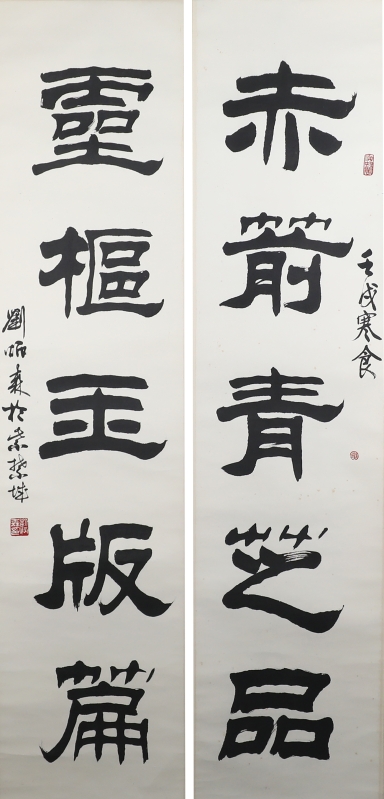 壬戌寒食
赤箭青芝品
靈樞玉版篇
劉炳森於紫禁城